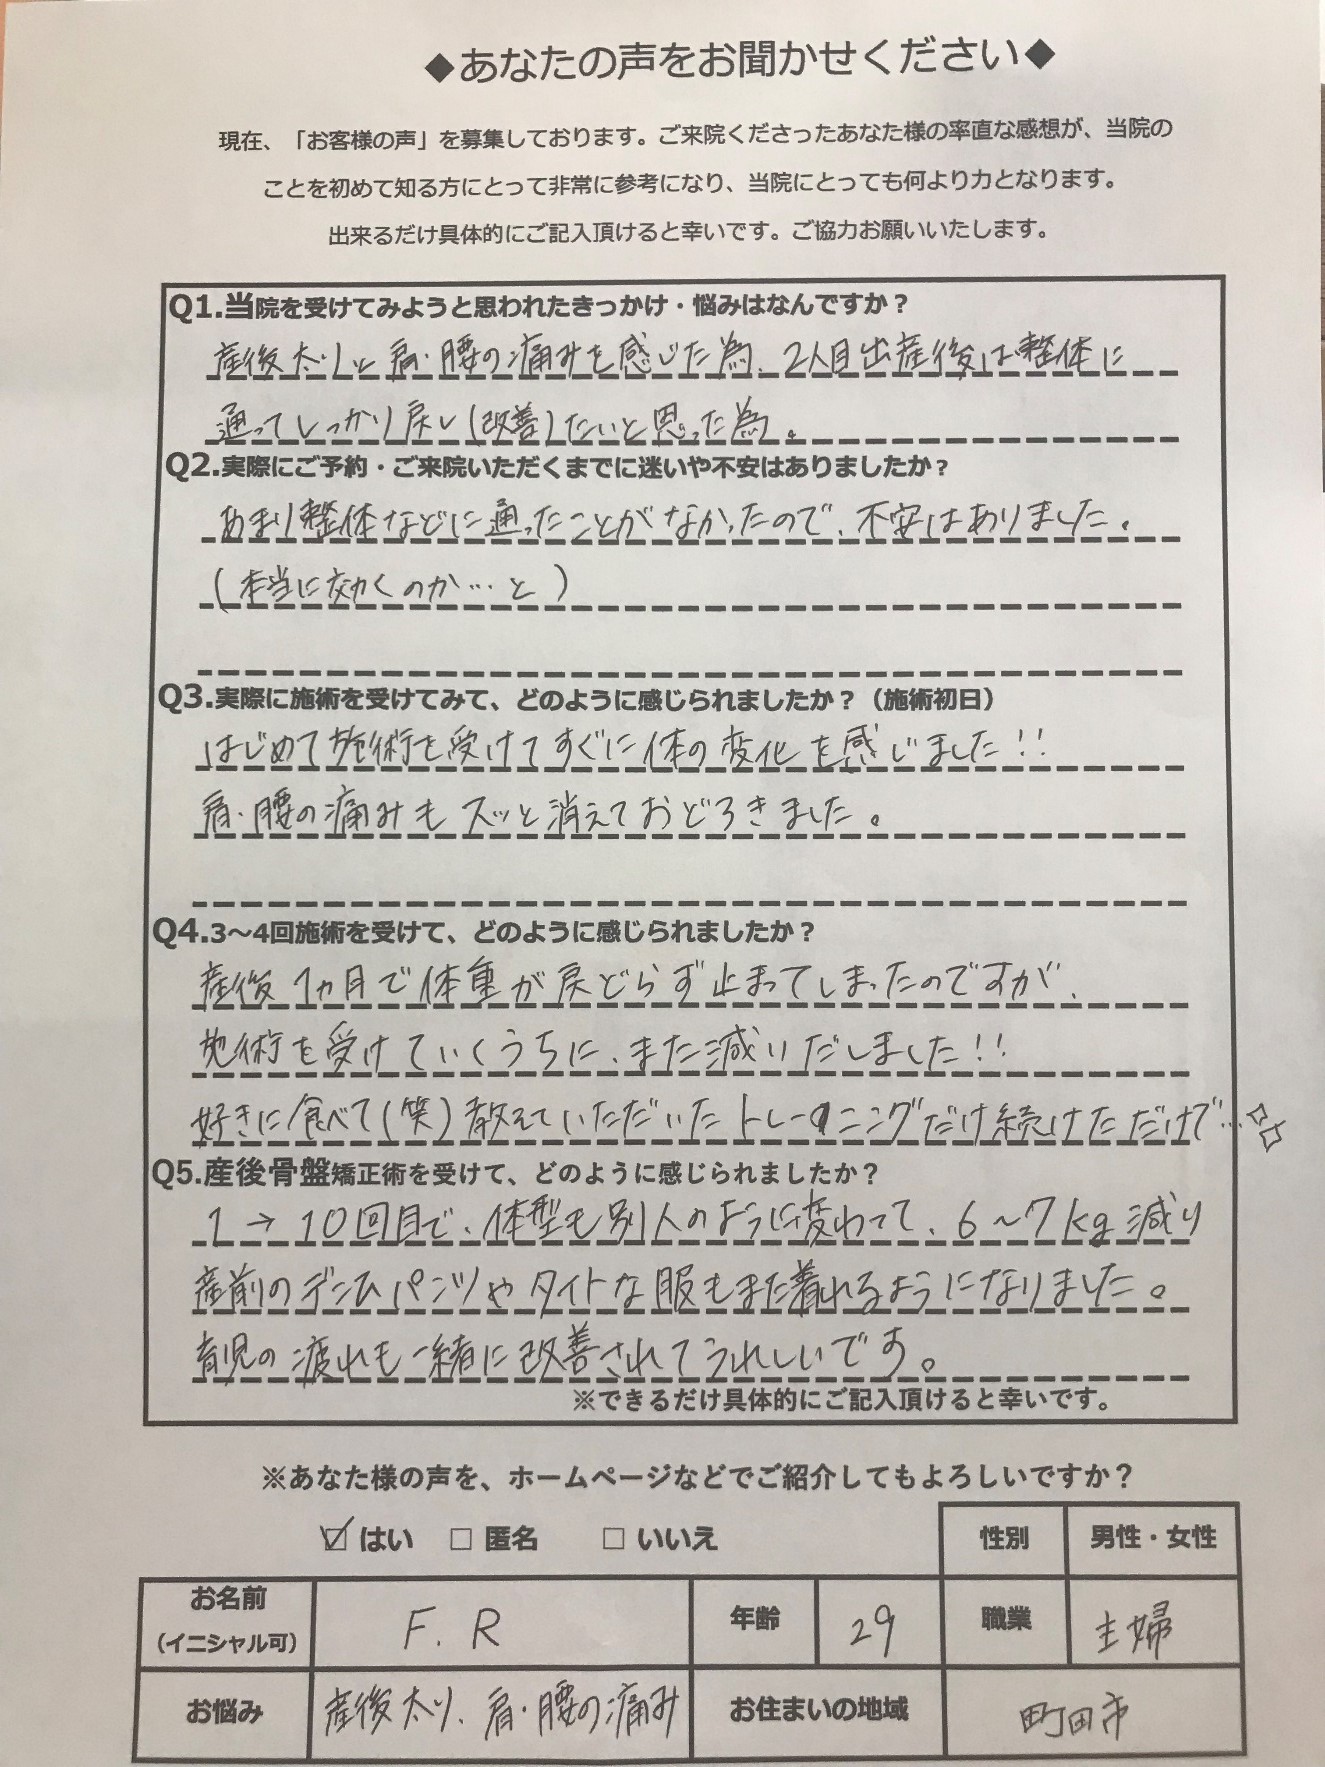 ◆あなたの声をお聞かせください◆
現在、「お客様の声」を募集しております。ご来院くださったあなた様の率直な感想が、当院の
ことを初めて知る方にとって非常に参考になり、当院にとっても何より力となります。
出来るだけ具体的にご記入頂けると幸いです。ご協力お願いいたします。
Q1.当院を受けてみようと思われたきっかけ・悩みはなんですか？
産後太りと肩・腰の痛みを感じた為、2人目出産後は整体に
通ってしっかり戻し(改善)したいと思った為。
Q2.実際にご予約・ご来院いただくまでに迷いや不安はありましたか？
あまり整体などに通ったことがなかったので、不安はありました。
(本当に効くのか…と)
Q3.実際に施術を受けてみて、どのように感じられましたか？（施術初日）
はじめて施術を受けてすぐに体の変化を感じました!!
肩・腰の痛みもスッと消えておどろきました。
Q4.3～4回施術を受けて、どのように感じられましたか？
産後1ヵ月で体重が戻どらず止まってしまったのですが、
施術を受けていくうちに、また減りだしました!!
好きに食べて(笑)教えていただいたトレーニングだけ続けただけで…
Q5.産後骨盤矯正術を受けて、どのように感じられましたか？
1→10回目で、体型も別人のように変わって、6～7kg減り
産前のデニムパンツやタイトな服もまた着れるようになりました。
育児の疲れも一緒に改善されてうれしいです。
※できるだけ具体的にご記入頂けると幸いです。
※あなた様の声を、ホームページなどでご紹介してもよろしいですか？
☑ はい □ 匿名 □ いいえ
性別 男性・女性
お名前（イニシャル可） F.R 年齢 29 職業 主婦
お悩み 産後太り、肩・腰の痛み お住まいの地域 町田市